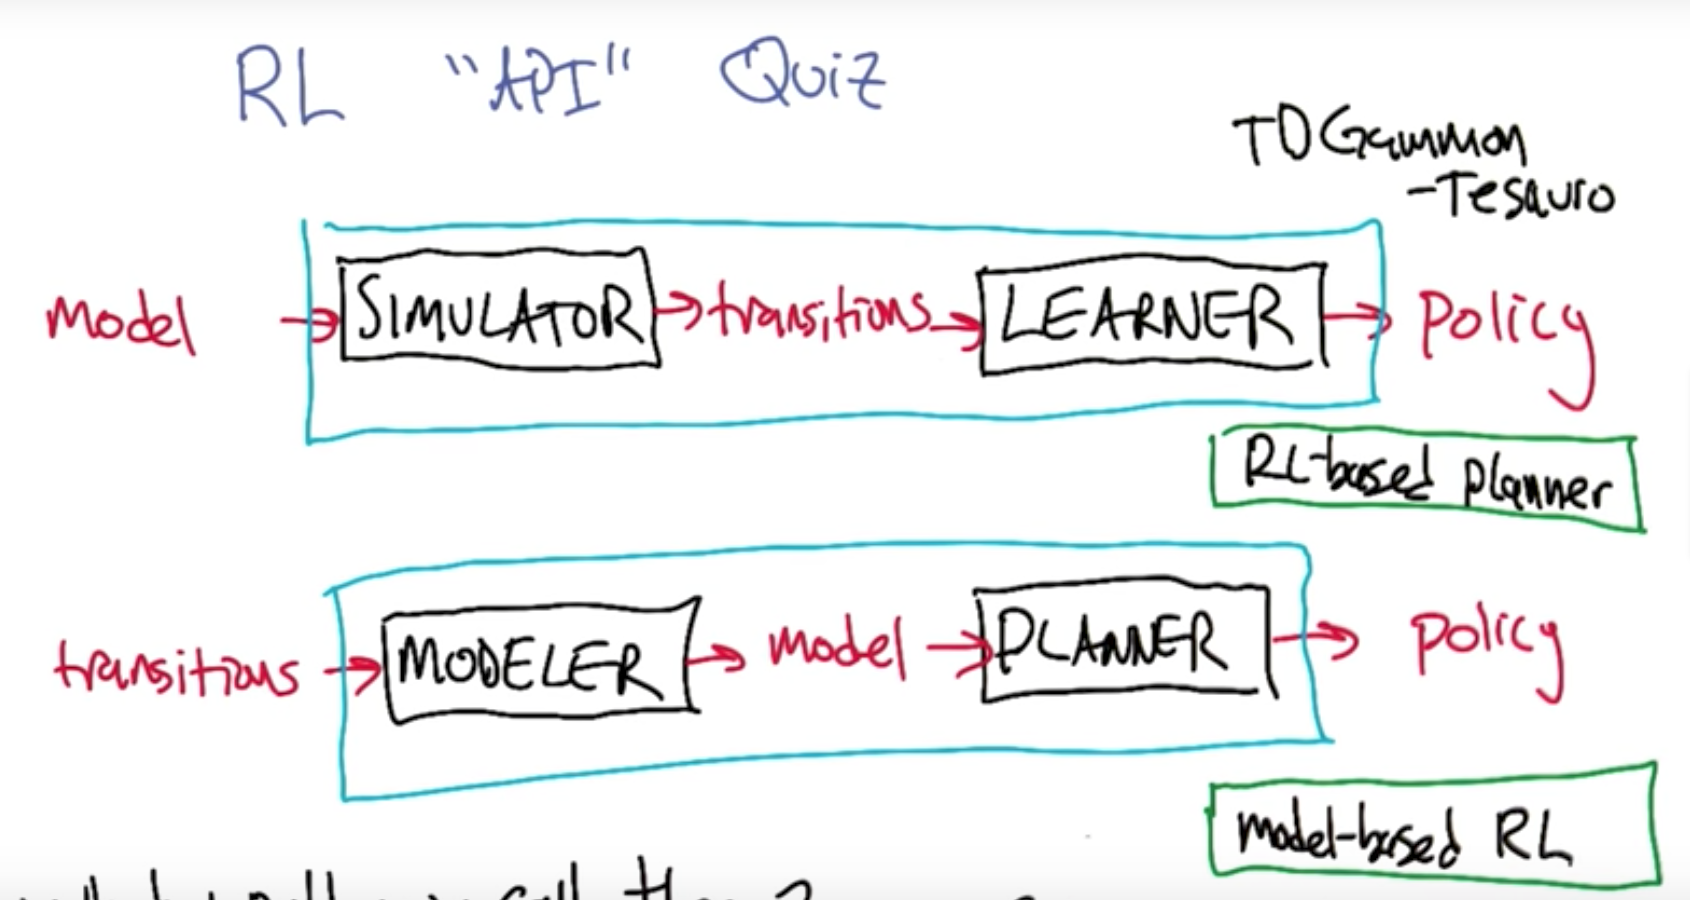 RL "API" Quiz
TDGammon
-Tesauro
Model → SIMULATOR → transitions → LEARNER → Policy
RL-based planner
transitions → MODELER → model → PLANNER → policy
model-based RL